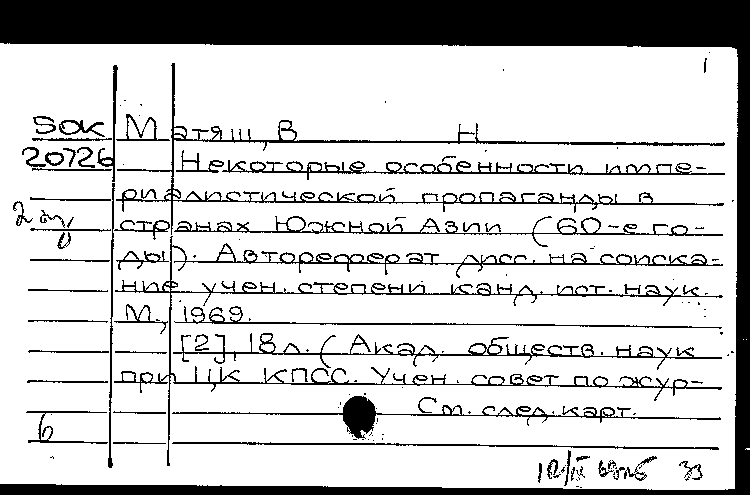 1
50К Матяш, В Н
20726 Некоторые особенности импе-
риалистической пропаганды в
странах Южной Азии (60-е го-
ды). Автореферат дисс. на соиска-
ние учен. степени канд. ист. наук.
М., 1969.
[2], 18 л. (Акад. обществ. наук
при ЦК КПСС. Учен. совет по жур-
См. след. карт.
6